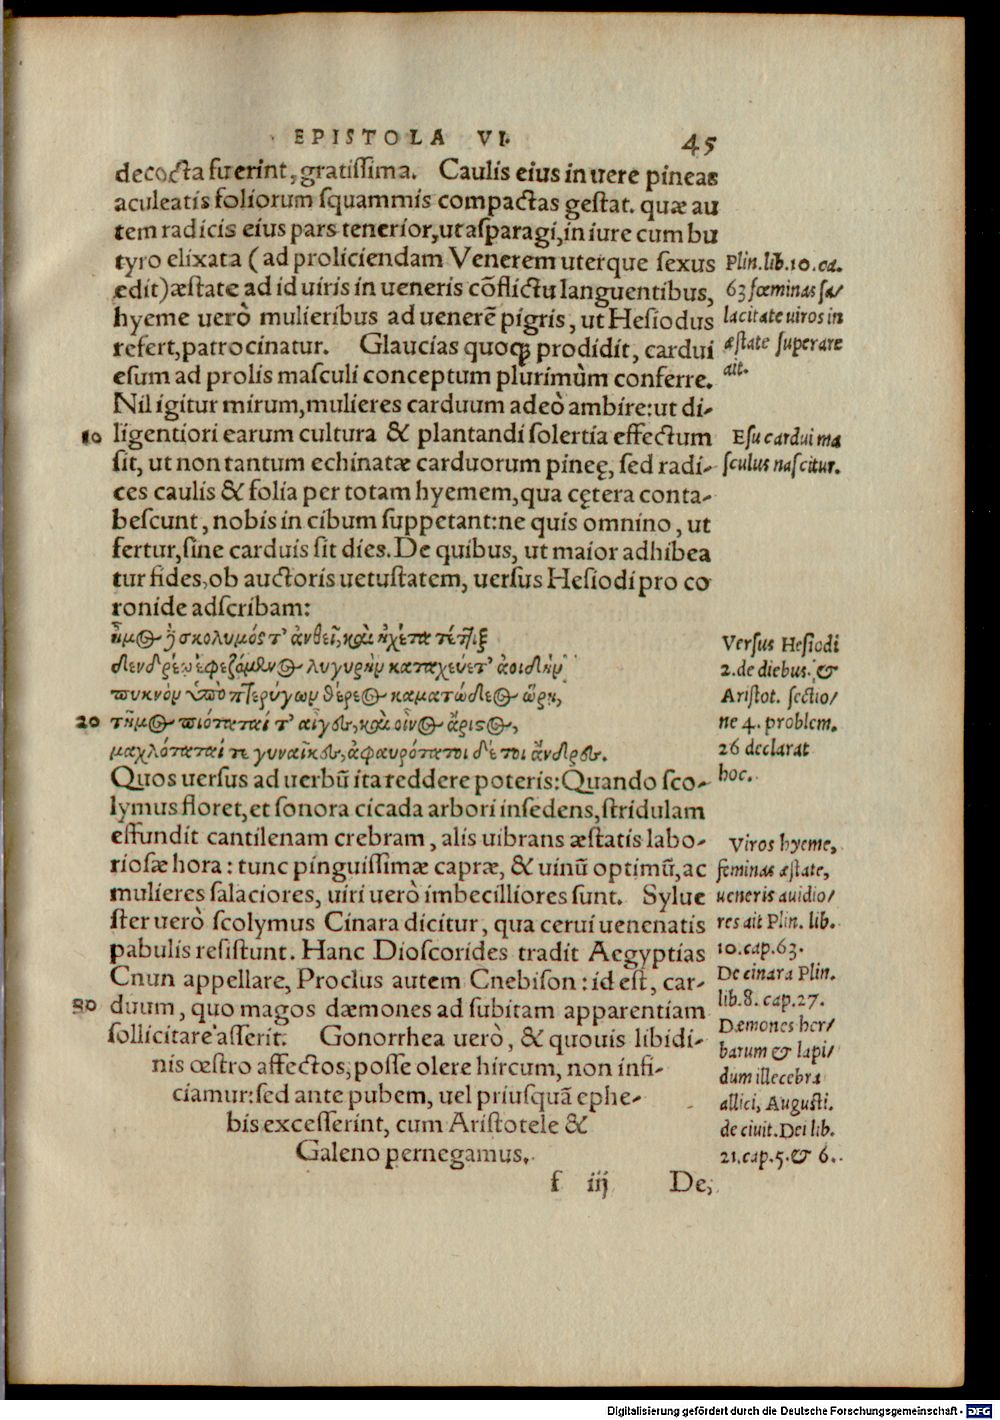 EPISTOLA VI. 45
decocta fuerint, gratissima. Caulis eius in uere pineas
aculeatis foliorum squammis compactas gestat. quæ au
tem radicis eius pars tenerior, ut asparagi, in iure cum bu
tyro elixata (ad proliciendam Venerem uterque sexus
edit) æstate ad id uiris in ueneris cōflictu languentibus,
hyeme uerò mulieribus ad uenerē pigris, ut Hesiodus
refert, patrocinatur. Glaucias quoqꝫ prodidit, cardui
esum ad prolis masculi conceptum plurimùm conferre.
Nil igitur mirum, mulieres carduum adeò ambire: ut di-
10 ligentiori earum cultura & plantandi solertia effectum
sit, ut non tantum echinatæ carduorum pineę, sed radi-
ces caulis & folia per totam hyemem, qua cętera conta-
bescunt, nobis in cibum suppetant: ne quis omnino, ut
fertur, sine carduis sit dies. De quibus, ut maior adhibea
tur fides, ob auctoris uetustatem, uersus Hesiodi pro co
ronide adscribam:
ἦμος ἢ σκολυμός τ' ἀνθεῖ, καὶ ἠχέτα τέτλιξ
δενδρέῳ ἐφεζόμενος λυγυρὴν καταχεύετ' ἀοιδὴν
πυκνὸν ὑπὸ πτερύγων θέρεος καματώδεος ὥρῃ,
20 τῆμος πιόταταί τ' αἶγες, καὶ οἶνος ἄριστος,
μαχλόταταί τε γυναῖκες, ἀφαυρότατοι δέ τοι ἄνδρες.
Quos uersus ad uerbū ita reddere poteris: Quando sco-
lymus floret, et sonora cicada arbori insedens, stridulam
effundit cantilenam crebram, alis uibrans æstatis labo-
riosæ hora: tunc pinguissimæ capræ, & uinū optimū, ac
mulieres salaciores, uiri uerò imbecilliores sunt. Sylue
ster uerò scolymus Cinara dicitur, qua cerui uenenatis
pabulis resistunt. Hanc Dioscorides tradit Aegyptias
Cnun appellare, Proclus autem Cnebison: id est, car-
30 duum, quo magos dæmones ad subitam apparentiam
sollicitare asserit. Gonorrhea uerò, & quouis libidi-
nis œstro affectos, posse olere hircum, non infi-
ciamur: sed ante pubem, uel priusquā ephe-
bis excesserint, cum Aristotele &
Galeno pernegamus.
f iij De,
Plin. lib. 10. ca.
63 fœminas sa/
lacitate uiros in
æstate superare
ait.
Esu cardui ma
sculus nascitur.
Versus Hesiodi
2. de diebus. &
Aristot. sectio/
ne 4. problem.
26 declarat
hoc.
Viros hyeme,
feminas æstate,
ueneris auidio/
res ait Plin. lib.
10. cap. 63.
De cinara Plin.
lib. 8. cap. 27.
Dæmones her/
barum & lapi/
dum illecebra
allici, Augusti.
de ciuit. Dei lib.
21. cap. 5. & 6.
Digitalisierung gefördert durch die Deutsche Forschungsgemeinschaft - DFG